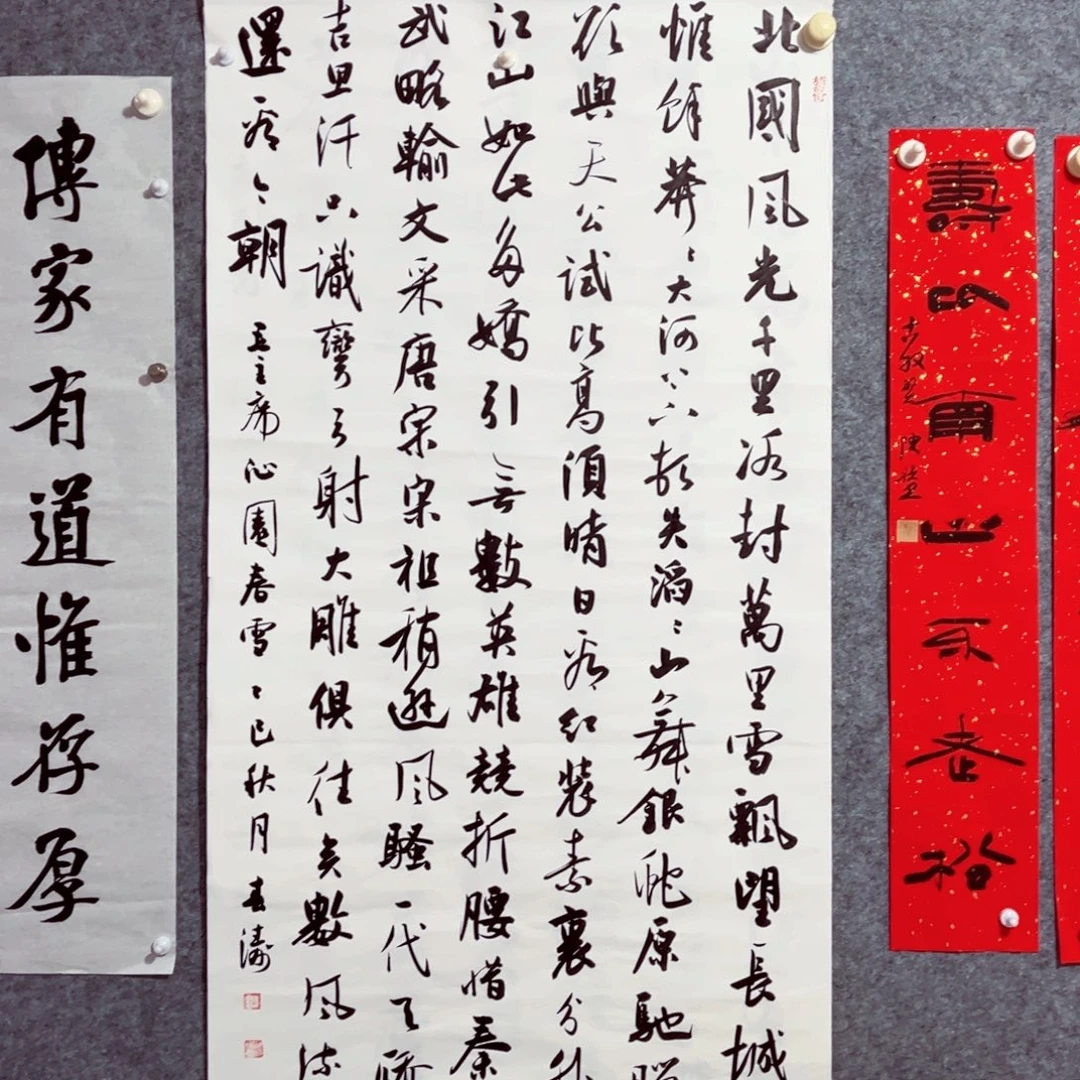 壽比南山不老松
北國風光千里冰封萬里雪飄望長城
惟餘莽〻大河上下頓失滔〻山舞銀蛇原馳蠟
欲與天公試比高須晴日看紅裝素裹分外
江山如此多嬌引無數英雄競折腰惜秦
武略輸文采唐宗宋祖稍遜風騷一代天驕
吉思汗只識彎弓射大雕俱往矣數風流
還看今朝 毛主席沁園春雪 乙巳秋月 春濤
傳家有道惟存厚